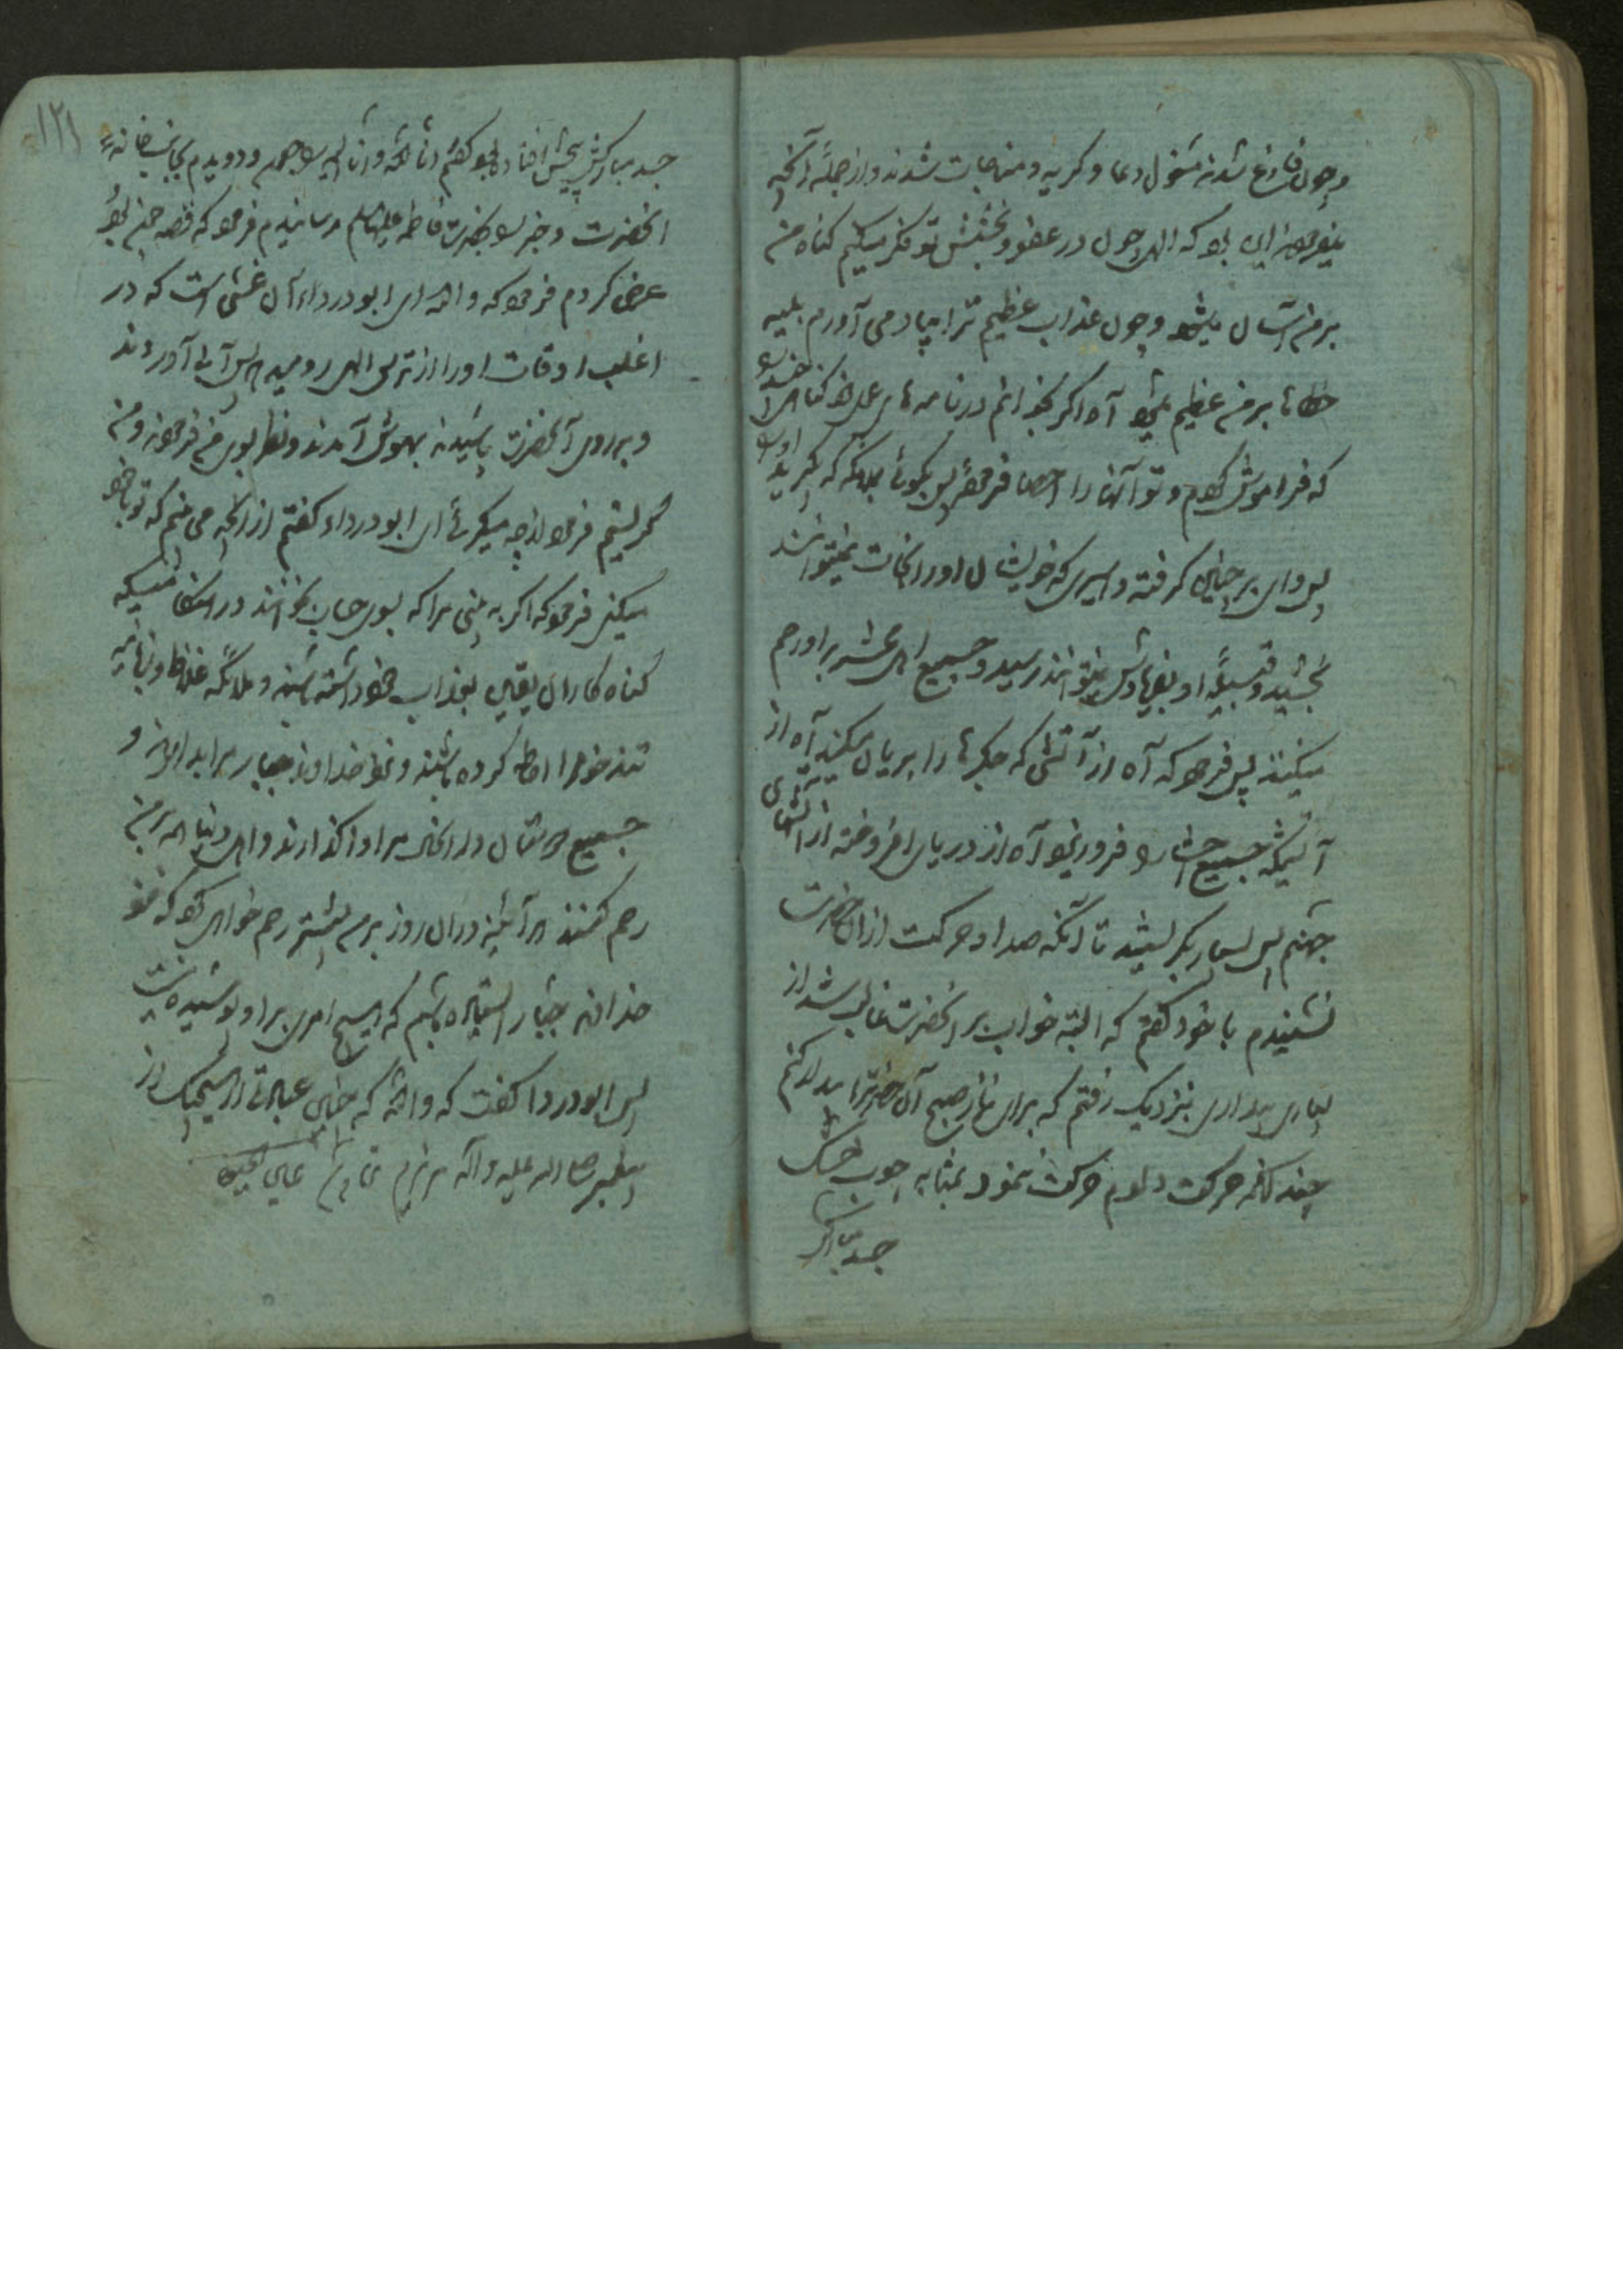 و چون فارغ شدند مشغول دعا و گریه و مناجات شدند و از جمله آنچه
میفرمودند این بود که الهی چون در عفو و بخشش تو فکر میکنم گناه من
بر من آسان میشود و چون عذاب عظیم ترا بیاد می آورم بلیه
خطاها بر من عظیم میشود آه اگر بخوانم در نامه های عمل خود گناهی چند
که فراموش کرده‌ام و تو آنها را احصا فرموده پس بگوئی بملائکه که بگیرید او را
پس وای بر چنین گرفته و اسیری که خویشان او را نجات نمیتوانند
بخشید و قبیله او بفریادش نمیتوانند رسید و جمیع اهل محشر بر او رحم
میکنند پس فرمود که آه از آتشی که جگرها را بریان میکند آه از
آتشیکه جمیع احشا را فرو ریزد آه از دریای افروخته از آتشهای
جهنم پس بسیار بگریستند تا آنکه صدا و حرکت از آن حضرت
نشنیدم با خود گفتم که البته خواب بر آنحضرت غالب شد از
بسیاری بیداری بنزدیک رفتم که برای نماز صبح آن حضرترا بیدار کنم
چندانکه حرکت دادم حرکت ننمود بمثابه چوب خشک
جسد مبارکش
۱۲۱
جسد مبارکش بیحس افتاده بود گفتم انا لله و انا الیه راجعون و دویدم بجانب خانه
آنحضرت و خبر را بحضرت فاطمه علیها السلام رسانیدم فرمود که قصه چون بود
عرض کردم فرمود که والله ای ابو درداء آن غشی است که در
اغلب اوقات او را از ترس الهی رو میدهد پس آبی آوردند
و بر روی آنحضرت پاشیدند بهوش آمدند و نظر بسوی من فرمودند و من
میگریستم فرمود از چه میگریی ای ابو درداء گفتم از آنچه می بینم که تو با خود
میکنی فرمود که اگر به بینی مرا که بسوی حساب بخوانند در هنگامیکه
گناه کاران یقین بعذاب خود داشته باشند و ملائکه غلاظ و زبانیه
تندخو مرا احاطه کرده باشند و نزد خداوند جبار مرا بدارند و
جمیع دوستان در آنحال مرا واگذارند و اهل دنیا همه بر من
رحم کنند هر آینه در آن روز بر من بیشتر رحم خواهی کرد که نزد
خداوند جبار ایستاده باشم که هیچ امری بر او پوشیده نیست
پس ابو دردا گفت که والله که چنین عبادتی از هیچیک از
پیغمبر صلی الله علیه و آله